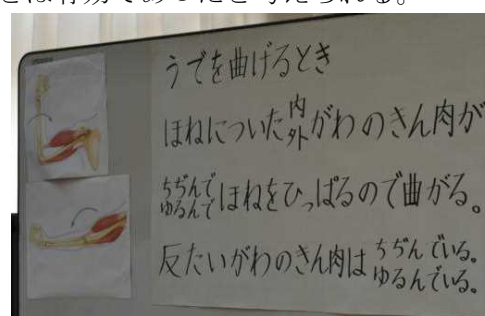 とは有効であったと考えられる。
うでを曲げるとき
ほねについた内外がわのきん肉が
ちぢんでゆるんでほねをひっぱるので曲がる。
反たいがわのきん肉はちぢんでいる。ゆるんでいる。